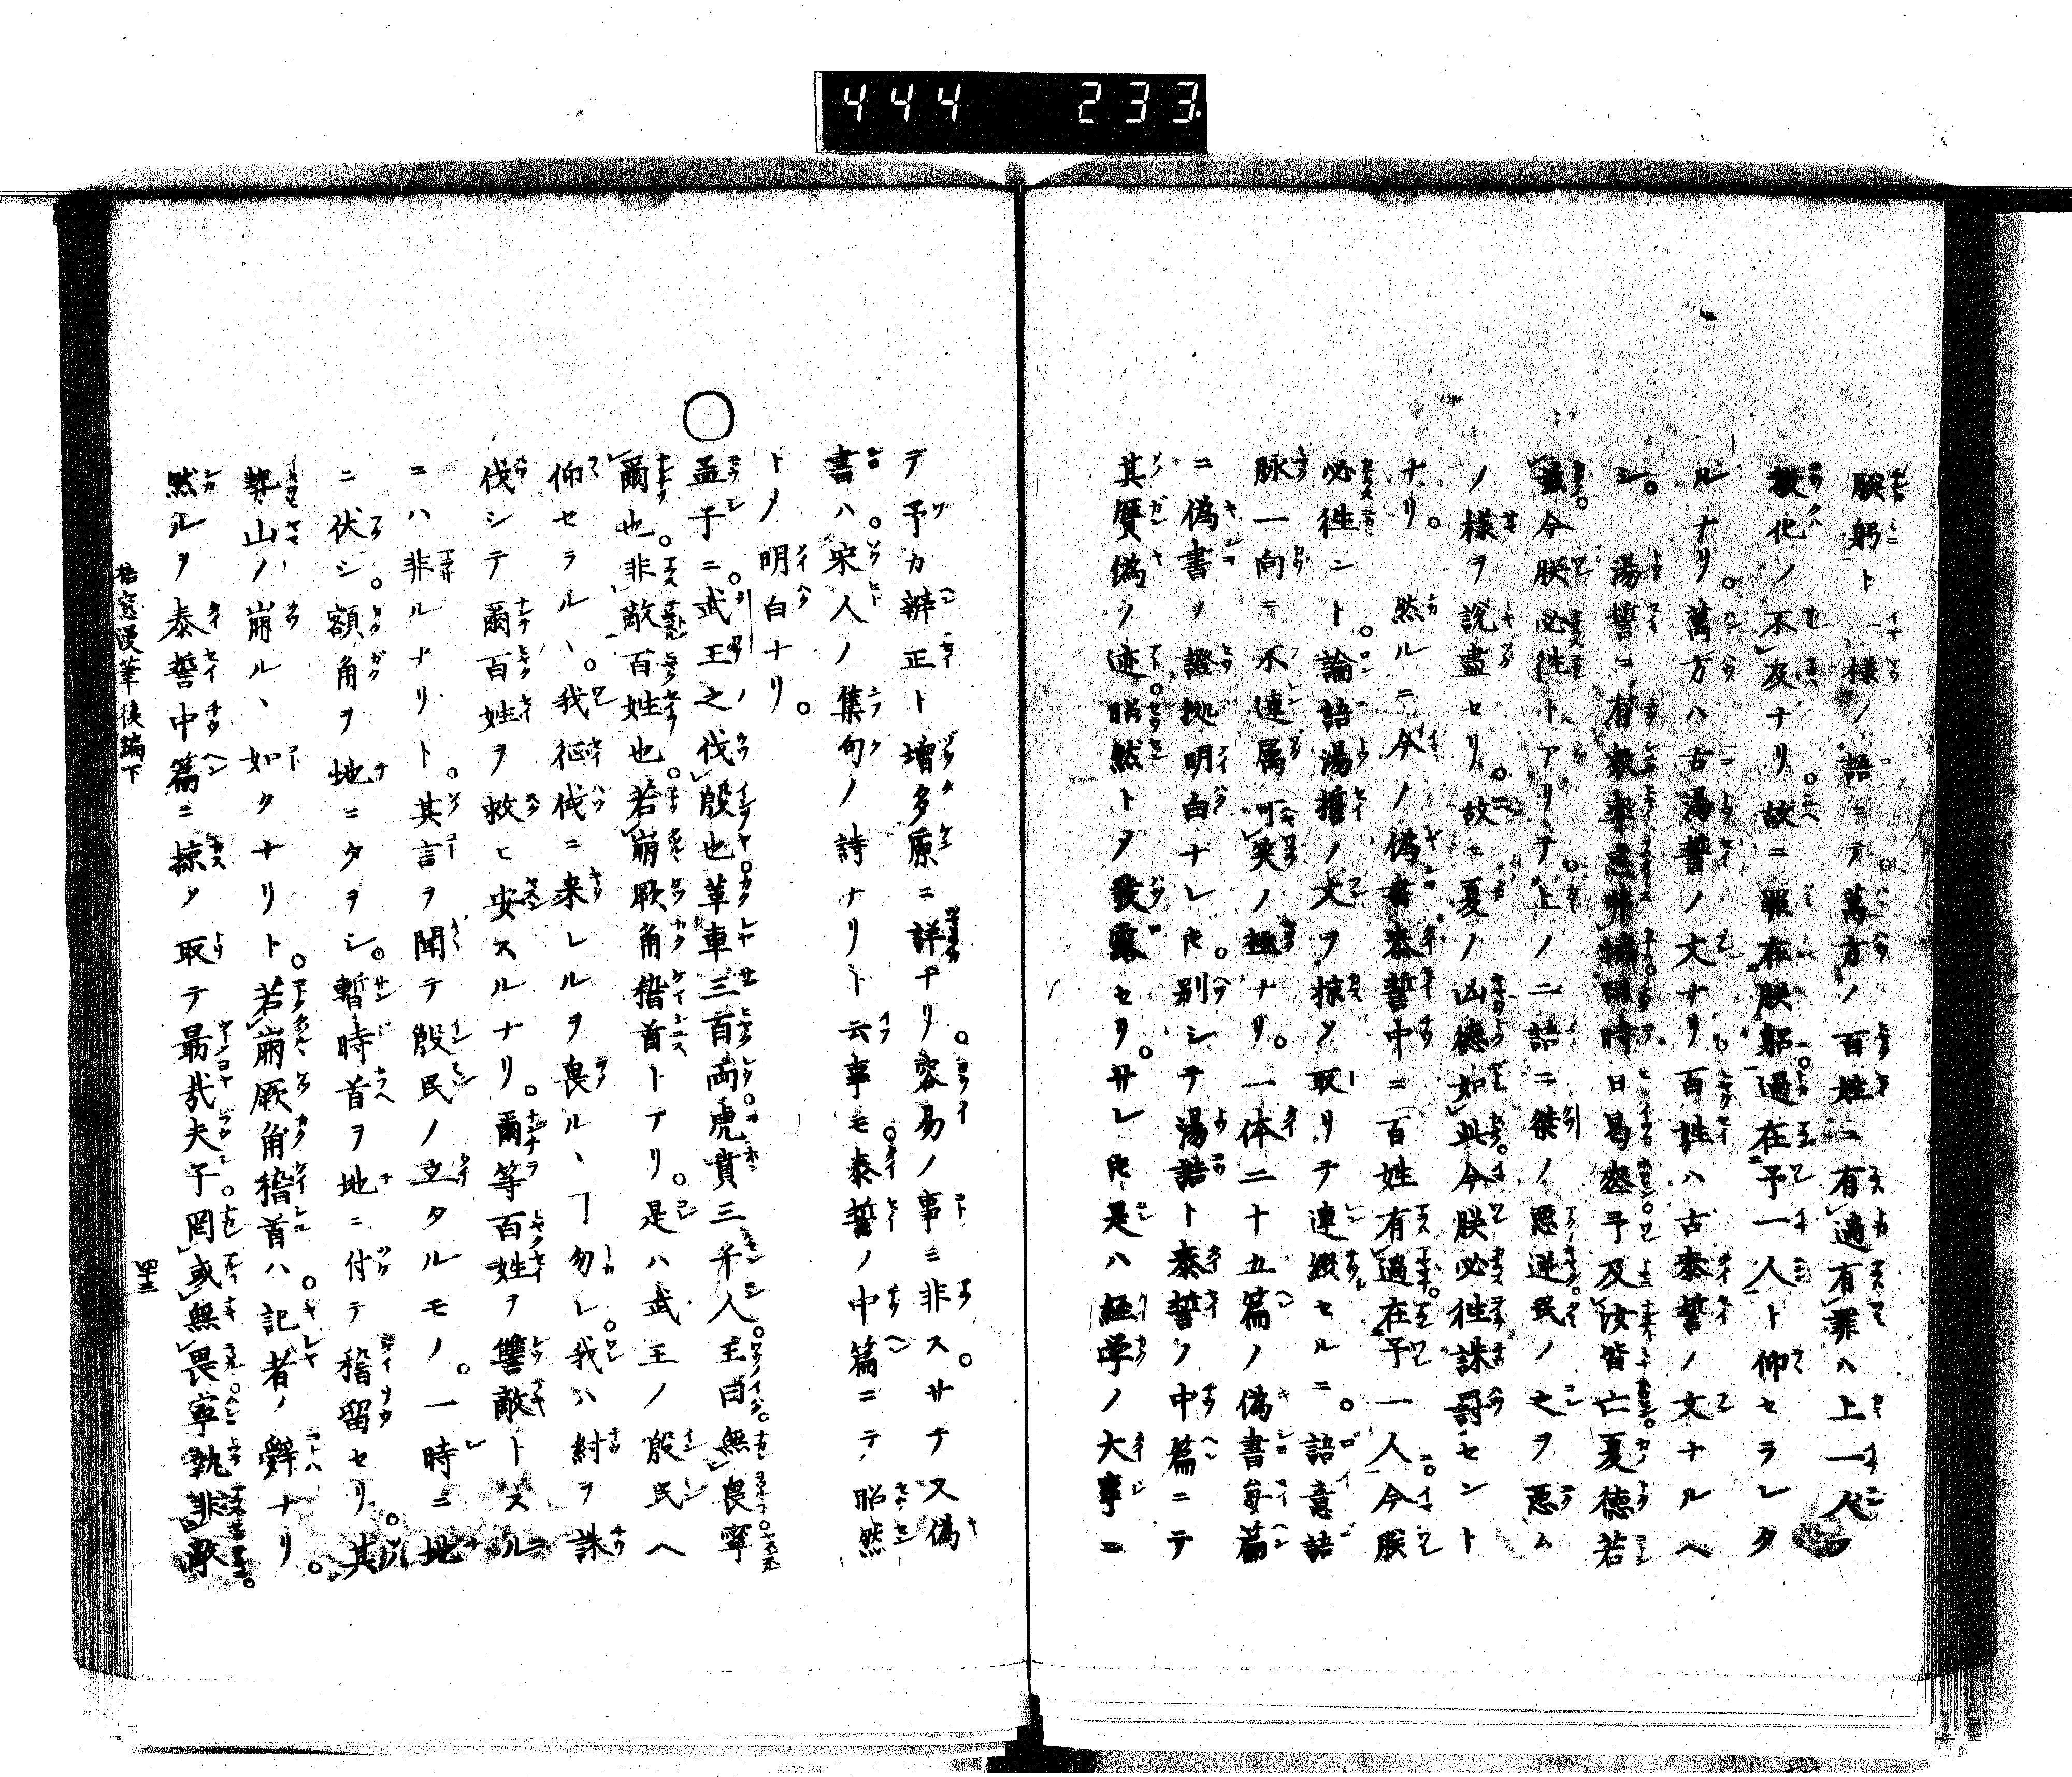 444 233
朕躬ト一様ノ語ニテ。萬方ノ百姓ニ有過有罪ハ上一人ノ
教化ノ不及ナリ。故ニ罪在朕躬。過在予一人ト仰セラレタ
ルナリ。萬方ハ古湯誓ノ文ナリ。百姓ハ古泰誓ノ文ナルヘ
シ。湯誓ニ有衆率怠弗協曰時日曷喪予及汝皆亡夏徳若
茲。今朕必徃トアリテ。上ノ二語ニ桀ノ惡逆民ノ之ヲ惡ム
ノ様ヲ説盡セリ。故ニ夏ノ凶徳如此今朕必徃誅罰セント
ナリ。然ルニ今ノ偽書泰誓中ニ百姓有過。在予一人。今朕
必徃ント。論語湯誓ノ文ヲ掠メ取リテ連綴セルニ。語意語
脉一向ニ不連属可笑ノ極ナリ。一体二十五篇ノ偽書毎篇
ニ偽書ノ證拠明白ナレ𪜈。別シテ湯誥ト泰誓ノ中篇ニテ
其贋偽ノ迹。昭然トメ發露セリ。サレ𪜈是ハ経学ノ大事ニ
テ予カ辨正ト壇多原ニ詳ナリ。容易ノ事ニ非ス。サテ又偽
書ハ。宋人ノ集句ノ詩ナリト云事モ。泰誓ノ中篇ニテ昭然
トメ明白ナリ。
○孟子ニ。武王之伐殷也。革車三百両。虎賁三千人。王曰。無畏。寧
爾也。非敵百姓也。若崩厥角稽首トアリ。是ハ武王ノ殷民ヘ
仰セラルヽ。我征伐ニ来レルヲ畏ルヽヿ勿レ。我ハ紂ヲ誅
伐シテ爾百姓ヲ救ヒ安スルナリ。爾等百姓ヲ讐敵トスル
ニハ非ルナリト。其言ヲ聞テ殷民ノ立タルモノ。一時ニ地
ニ伏シ。額角ヲ地ニタヲシ。暫時首ヲ地ニ付テ稽留セリ。其
勢山ノ崩ルヽ如クナリト。若崩厥角稽首ハ。記者ノ辭ナリ。
然ルヲ泰誓中篇ニ掠メ取テ最哉夫子。罔或無畏。寧執非敵
梧窓漫筆後編下
四十三